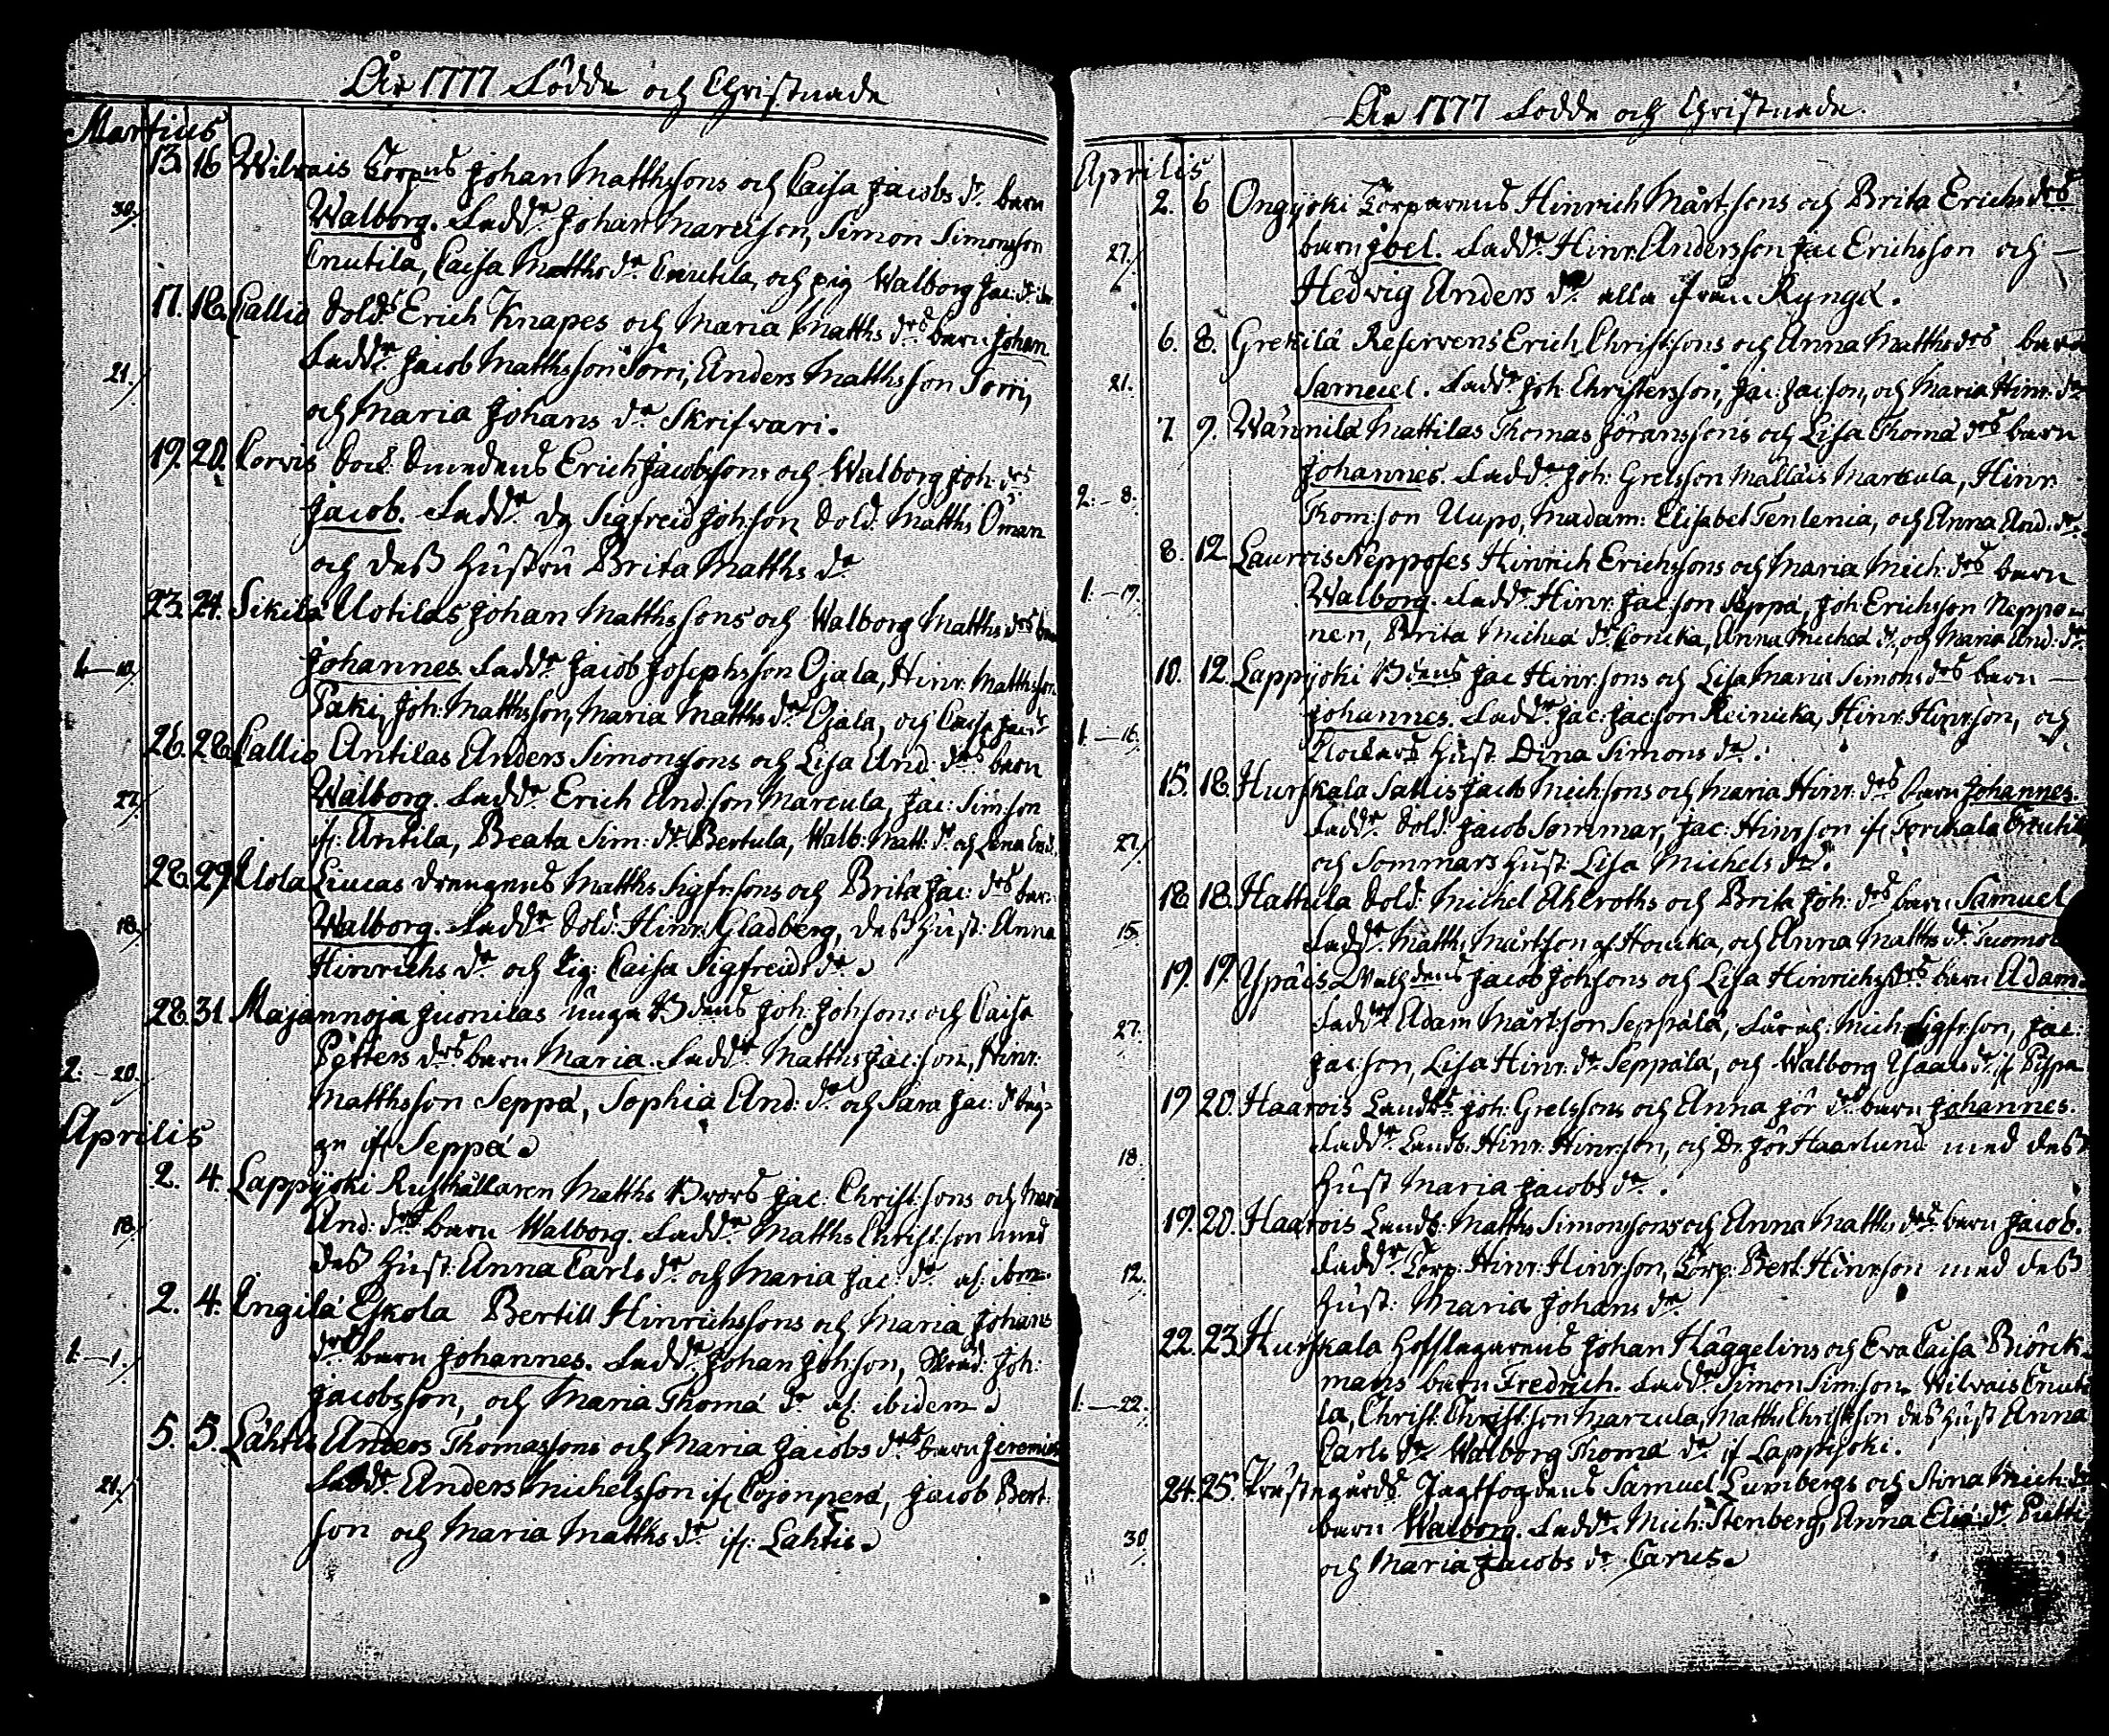 År 1777 Födde och Christnade
Martius
13. 16 Wilvais Torp:ns Johan Matthssons och Caisa Jacobs dr. barn
30. Walborg. Fadd:r Johan Marcuson, Simon Simonsson
Cnutila, Caisa Matths dr Cnutila, och pig Walborg Jac: dr
17. 18. Callio Sold: Erich Knapes och Maria Matths drs barn Johan
21. Fadd:r Jacob Matthsson Sorri, Anders Matthsson Sorri,
och Maria Johans dr Skrifvari.
19. 20. Corvis Erich Jacobssons och Walborg Joh: drs
Jacob. Fadd:r Sigfreid Joh:son Sold: Matths Öman
och dess hustru Brita Matths dr
23. 24. Sikilä Uotilas Johan Matthssons och Walborg Matths drs barn
1.—10. Johannes Fadd:r Jacob Josephsson Ojala, Hinr: Matthsson
Paki, Joh: Matthsson, Maria Matths dr Ojala, och Caisa Jac: dr
26. 28. Callio Antilas Anders Simonssons och Lisa And: drs barn
27. Walborg. Fadd:r Erich And:son Marcula, Jac: Sim:son
if: Antila, Beata Sim: dr Bertula, Walb: Matt: dr och Lena
28. 29. Ulola Liucas drengens Matths Sigfr:sons och Brita Jac: drs barn
18. Walborg. Fadd:r Sold: Hinr: Gladberg, dess hust: Anna
Hinrichs dr och Pig: Caisa Sigfreids dr
28. 31. Majannoja Juonilas unga B:dens Joh: Joh:sons och Caisa
Petters drs barn Maria. Fadd:r Matths Jac:son, Hinr:
2.—20. Matthsson Seppä, Sophia And: dr och Sara Jac: d bäg-
ge if: Seppä
Aprilis
2. 4. Lappijoki Rusthållaren Matths Brors Jac: Christ:sons och Maria
18. And: drs barn Walborg. Fadd:r Matths Christ:son med
dess hust: Anna Carls dr och Maria Jac: dr af: ibm.
2. 4. Ingilä Eskola Bertill Hinrichssons och Maria Johans
1.—1. drs barn Johannes. Fadd:r Johan Joh:son, Joh:
Jacobsson, och Maria Thoma dr af: ibidem
5. 5. Lahtis Anders Thomassons och Maria Jacobs drs barn Jeremias
21. Fadd:r Anders Michelsson if: Cojonperä, Jacob Bert:
son och Maria Matths dr if: Lahtis
År 1777 Födde och Christnade.
Aprilis
2. 6 Ongijoki Torparens Hinrich Mårt:sons och Brita Erichs drs
27. barn Joel. Fadd:r Hinr: Andersson Jac Erichsson och
Hedvig Anders dr alla ifrån Ryngä.
6. 8. Grekilä Reservens Erich Christ:sons och Anna Matths drs barn
21. Samuel. Fadd:r Joh: Christersson, Jac: Jac:son, och Maria Hinr: dr
7. 9. Wännilä Mattilas Thomas Göranssons och Lisa Thoma drs barn
2.—8. Johannes. Fadd:r Joh: Grelsson Mällais Marcula, Hinr:
Thom:son Uupo, Madam: Elisabet Tenlenia, och Anna And: dr.
8. 12 Laurois Nepposes Hinrich Erichssons och Maria Mich: drs barn
1.—17. Walborg. Fadd:r Hinr: Jac:son Seppä, Joh: Erichsson Neppo-
nen, Brita Michea dr Conika, Anna Michea dr, och Maria And: dr
10. 12. Lappijoki B:dens Jac Hinr:sons och Lisa Maria Simons drs barn
1.—16. Johannes. Fadd:r Jac: Jac:son Reinicka, Hinr: Hinr:son, och
Klockars hust: Dina Simons dr.
15. 18. Hurskala Sallis Jacob Mich:sons och Maria Hinr: drs barn Johannes.
27. Fadd:r Sold: Jacob Sommar, Jac: Hinr:son if:
och Sommars hust: Lisa Michels dr.
18. 18. Hattula Sold: Michel Ahlroths och Brita Joh: drs barn Samuel
15. Fadd:r Matth: Mårt:son af Houcka, och Anna Matths dr
19. 19. Ypäis Jacob Joh:sons och Lisa Hinrichs drs barn Adam.
27. Fadd:r Adam Mårt:son Seppälä, Mich: Sigfr:son, Jac:
Jac:son, Lisa Hinr: dr Seppälä, och Walborg Isaacs dr if
19 20. Haarois Landb: Joh: Grelssons och Anna Jör drs barn Johannes.
18. Fadd:r Landb: Hinr: Hinr:son, och Dr: Jör Haarlund med dess
hust Maria Jacobs dr.
19. 20. Haarois Landb: Matths Simonssons och Anna Matths drs barn Jacob.
12. Fadd:r Torp: Hinr: Hinr:son, Torp: Bert: Hinr:son med dess
hust: Maria Johans dr
22. 23. Hurskala Hofslagarens Johan Häggelins och Eva Caisa Biörck-
mans barn Fredrich. Fadd:r Simon Sim:son Wilvais Cnuti
1.—22. la, Christ: Christ:son Marcula, Matths Christ:son dess hust Anna
Carls dr Walborg Thoma dr if Lappijoki.
24. 25. Prästegårds Jagtfogdens Samuel Lumbergs och Stina Mich: drs
30 barn Walborg. Fadd:r Mich: Stenberg, Anna Elia: dr
och Maria Jacobs dr Carus